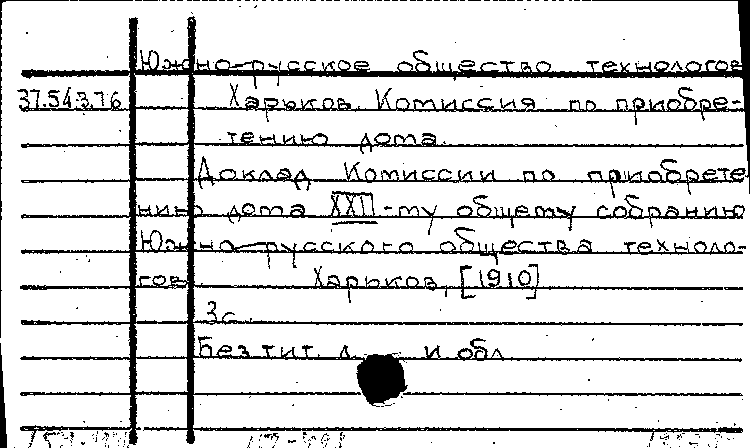 Южно-русское общество технологов
37.543.76 Харьков. Комиссия по приобре-
тению дома.
Доклад Комиссии по приобрете
нию дома XXII-му общему собранию
Южно-русского общества техноло-
гов. Харьков, [1910]
3с.
Без тит. л. и обл